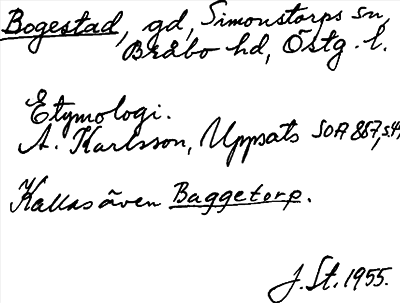 Bogestad, gd, Simonstorps sn,
Bråbo hd, Östg. l.
Etymologi.
A. Karlsson, Uppsats SOA 857, s.4
Kallas även Baggetorp.
J. St. 1955.